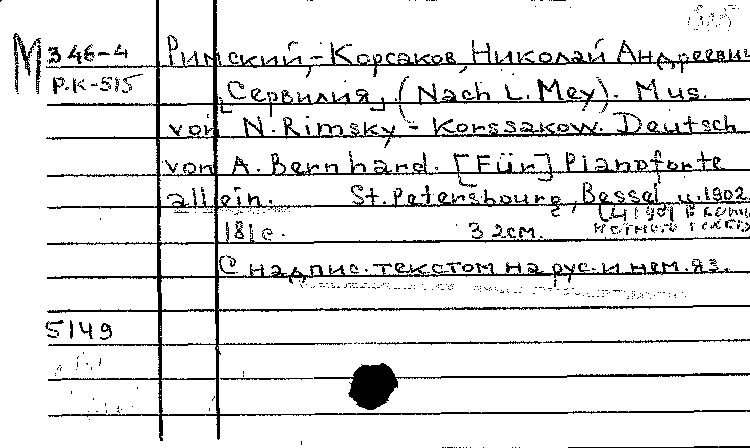 М 346-4
Р.К-515
Римский-Корсаков, Николай Андреевич
„Сервилия„ (Nach L. Mey). Mus.
von N. Rimsky-Korssakow. Deutsch
von A. Bernhard. [Für] Pianoforte
allein. St. Petersbourg, Bessel, 1902
181с. 32см.
С надпис. текстом на рус. и нем. яз.
5149